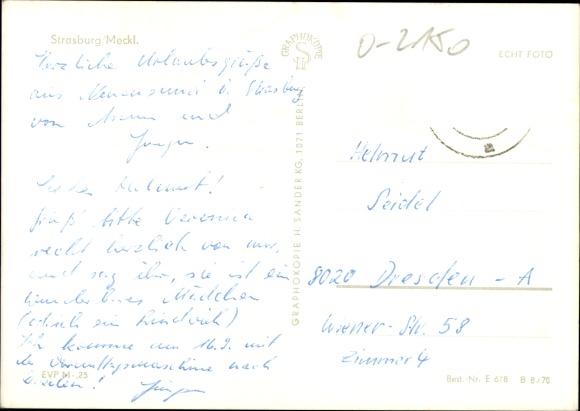 Strasburg/Meckl.
Herzliche Urlaubsgrüße
aus b. Strasburg
von und
Jürgen.
Lieber Helmut!
Grüß bitte Veronica
recht herzlich von mir,
und sag ihr, sie ist ein
liebes Mädchen
(obwohl ein )
Ich komme am 16.9. mit
der Vormittagsmaschine nach
Dresden! Jürgen
EVP M -,25
GRAPHOKOPIE
GRAPHOKOPIE H. SANDER KG, 1071 BERLIN
0-2150
ECHT FOTO
Helmut
Seidel
8020 Dresden - A
Wiener-Str. 58
Zimmer 4
Best.-Nr. E 678 B 8/70